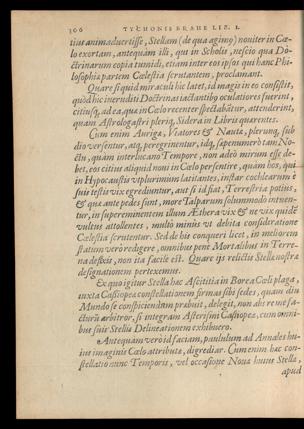 306 TYCHONIS BRAHE LIB. I.
tius animaduertisse, Stellam (de qua agimus) nouiter in Cœ-
lo exortam, antequàm illi, qui in Scholis, nescio qua Do-
ctrinarum copia tumidi, etiam inter eos ipsos qui hanc Phi-
losophiæ partem Cœlestia scrutantem, proclamant.
Quare si quid miraculi hic latet, id magis in eo consistit,
quòd hic ineruditi Doctrinæ iactantibus oculatiores fuerint,
citiusq, ad ea, quæ in Cœlo recenter spectabãtur, attenderint,
quàm Astrologastri pleriq, Sidera in Libris quærentes.
Cum enim Aurigæ, Viatores & Nautæ, plerunq, sub
dio versentur, atq, peregrinentur, idq, sæpenumerò tam No-
ctu, quàm interlucano Tempore, non adeò mirum esse de-
bet, eos citius aliquid noui in Cœlo persentire, quàm hos, qui
in Hypocaustis vt plurimùm latitantes, instar cochlearum è
suis testis vix egrediuntur, aut si id fiat, Terrestria potius,
& quæ ante pedes sunt, more Talparum solummodo intuen-
tur, in supereminentem illum Æthera vix & ne vix quidẽ
vultus attollentes, multò minùs vt debita consideratione
Cœlestia scrutentur. Sed de his conqueri licet, in meliorem
statum verò redigere, omnibus penè Mortalibus in Terre-
na defixis, non ita facile est. Quare ijs relictis Stellæ nostræ
designationem pertexemus.
Ex quo igitur Stella hæc Ascititia in Borea Cœli plaga,
iuxta Cassiopeæ constellationem firmas sibi sedes, quàm diu
Mundo se conspiciendam præbuit, delegit, non abs re me fa-
cturũ arbitror, si integram Asterismi Cassiopeæ, cum omni-
bus suis Stellis Delineationem exhibuero.
Antequam verò id faciam, paululùm ad Annales hu-
ius imaginis Cœlo attributæ, digrediar. Cum enim hæc con-
stellatio nunc Temporis, vel occasione Nouæ huius Stellæ,
apud